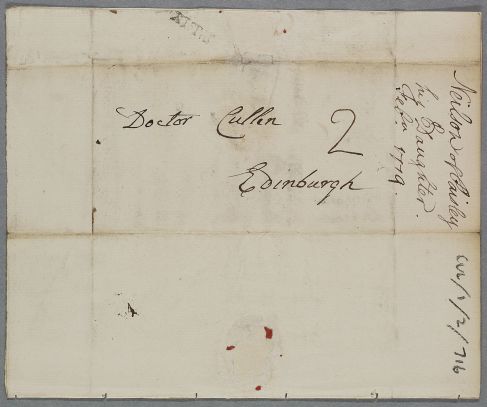 Doctor Cullen
2
Edinburgh
Neilson of Paisley
his Daughter.
Feb. 1779.
CUL/1/2/716
4